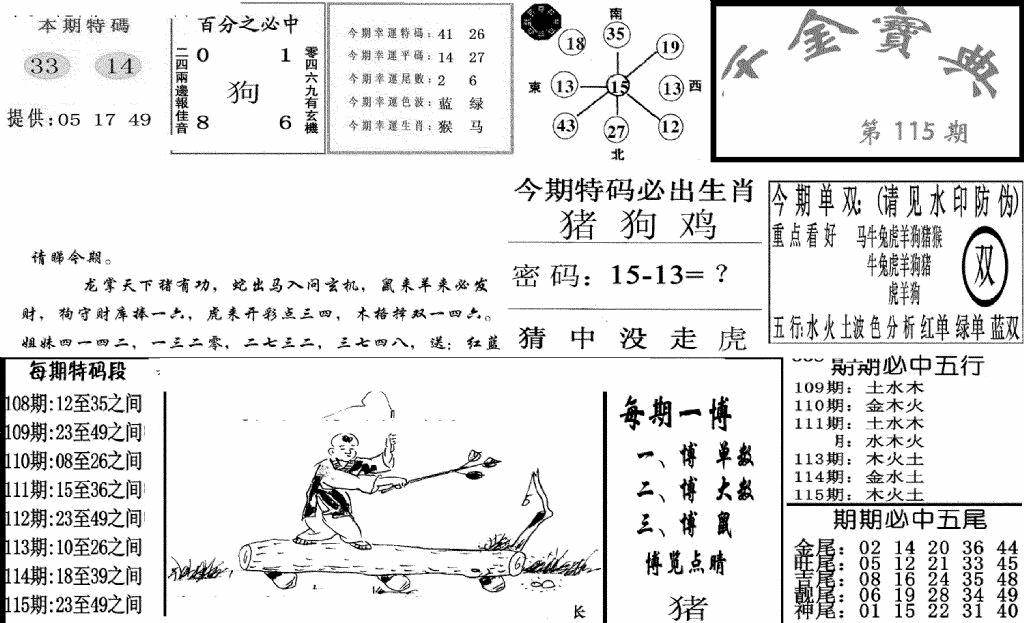 本期特碼
33 14
提供:05 17 49
百分之必中
二四兩邊報佳音
0 1
狗
8 6
零四六九有玄機
今期幸運特碼: 41 26
今期幸運平碼: 14 27
今期幸運尾數: 2 6
今期幸運色波: 蓝 绿
今期幸運生肖: 猴 马
南
18 35 19
東 13 15 13 西
43 27 12
北
金寶典
第115期
请睇令期。
龙掌天下猪有功，蛇出马入问玄机，鼠来羊来必发
财，狗守财库捧一六，虎来开彩点三四，木格择双一四六。
姐妹四一四二，一三二零，二七三二，三七四八，送：红蓝
今期特码必出生肖
猪 狗 鸡
密码：15-13=？
猜中没走虎
今期单双:(请见水印防伪)
重点看好 马牛兔虎羊狗猪猴
牛兔虎羊狗猪
虎羊狗
双
五行:水火土波色分析 红单 绿单 蓝双
每期特码段
108期:12至35之间
109期:23至49之间
110期:08至26之间
111期:15至36之间
112期:23至49之间
113期:10至26之间
114期:18至39之间
115期:23至49之间
每期一博
一、博 单数
二、博 大数
三、博 鼠
博览点睛
猪
期期必中五行
109期：土水木
110期：金木火
111期：土水木
水木火
113期：木火土
114期：金水土
115期：木火土
期期必中五尾
金尾：02 14 20 36 44
旺尾：05 12 21 33 45
吉尾：08 16 24 35 48
靓尾：06 19 28 34 49
神尾：01 15 22 31 40